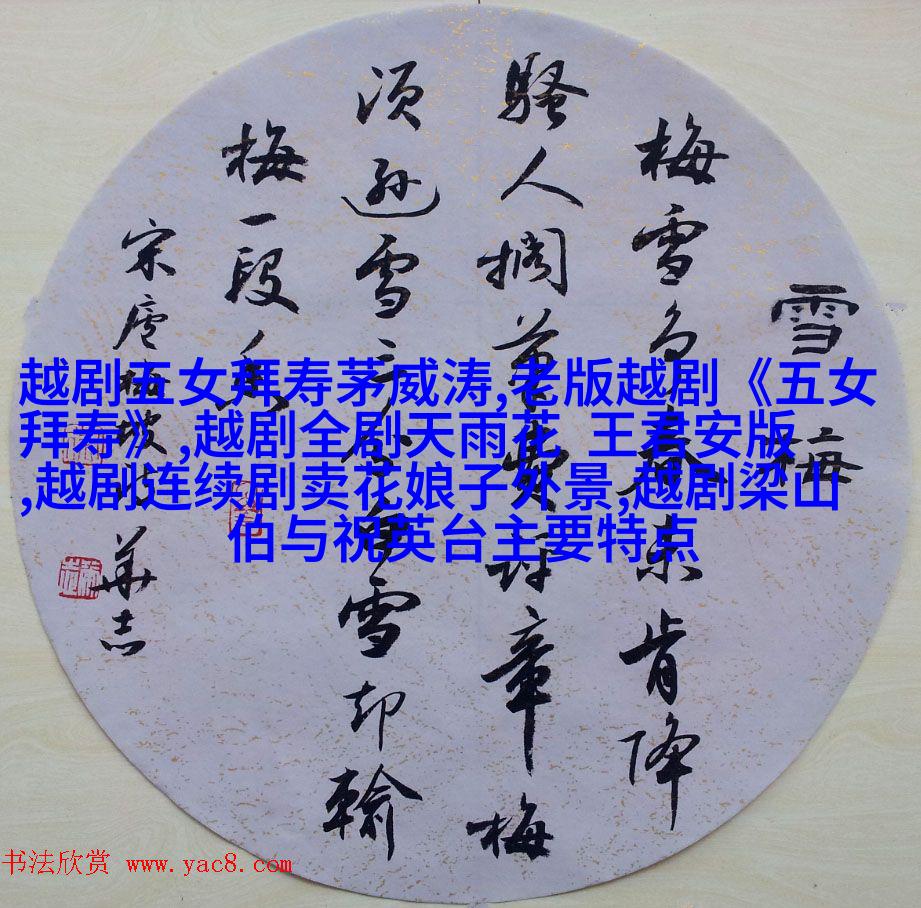 雪梅
梅雪争春未肯降
骚人搁笔费章梅
须逊雪三分白雪却输
梅一段香
宋卢梅坡华志
越剧五女拜寿茅威涛,老版越剧《五女
拜寿》,越剧全剧天雨花 王君安版
,越剧连续剧卖花娘子外景,越剧梁山
伯与祝英台主要特点
书法欣赏 www.yac8.com